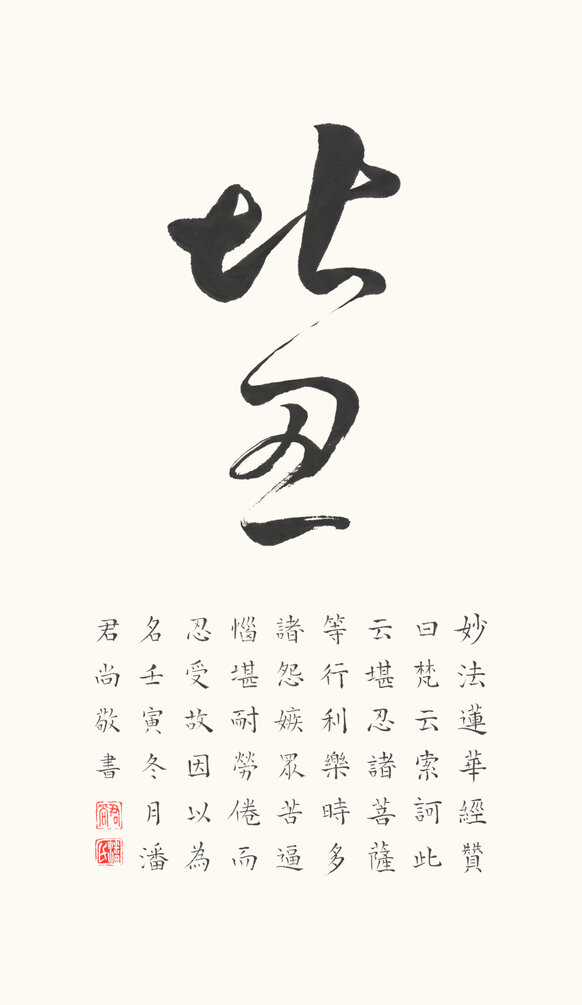 堪忍
妙法蓮華經贊
曰梵云索訶此
云堪忍諸菩薩
等行利樂時多
諸怨嫉眾苦逼
惱堪耐勞倦而
忍受故因以為
名壬寅冬月潘
君尚敬書
君尚
潘氏